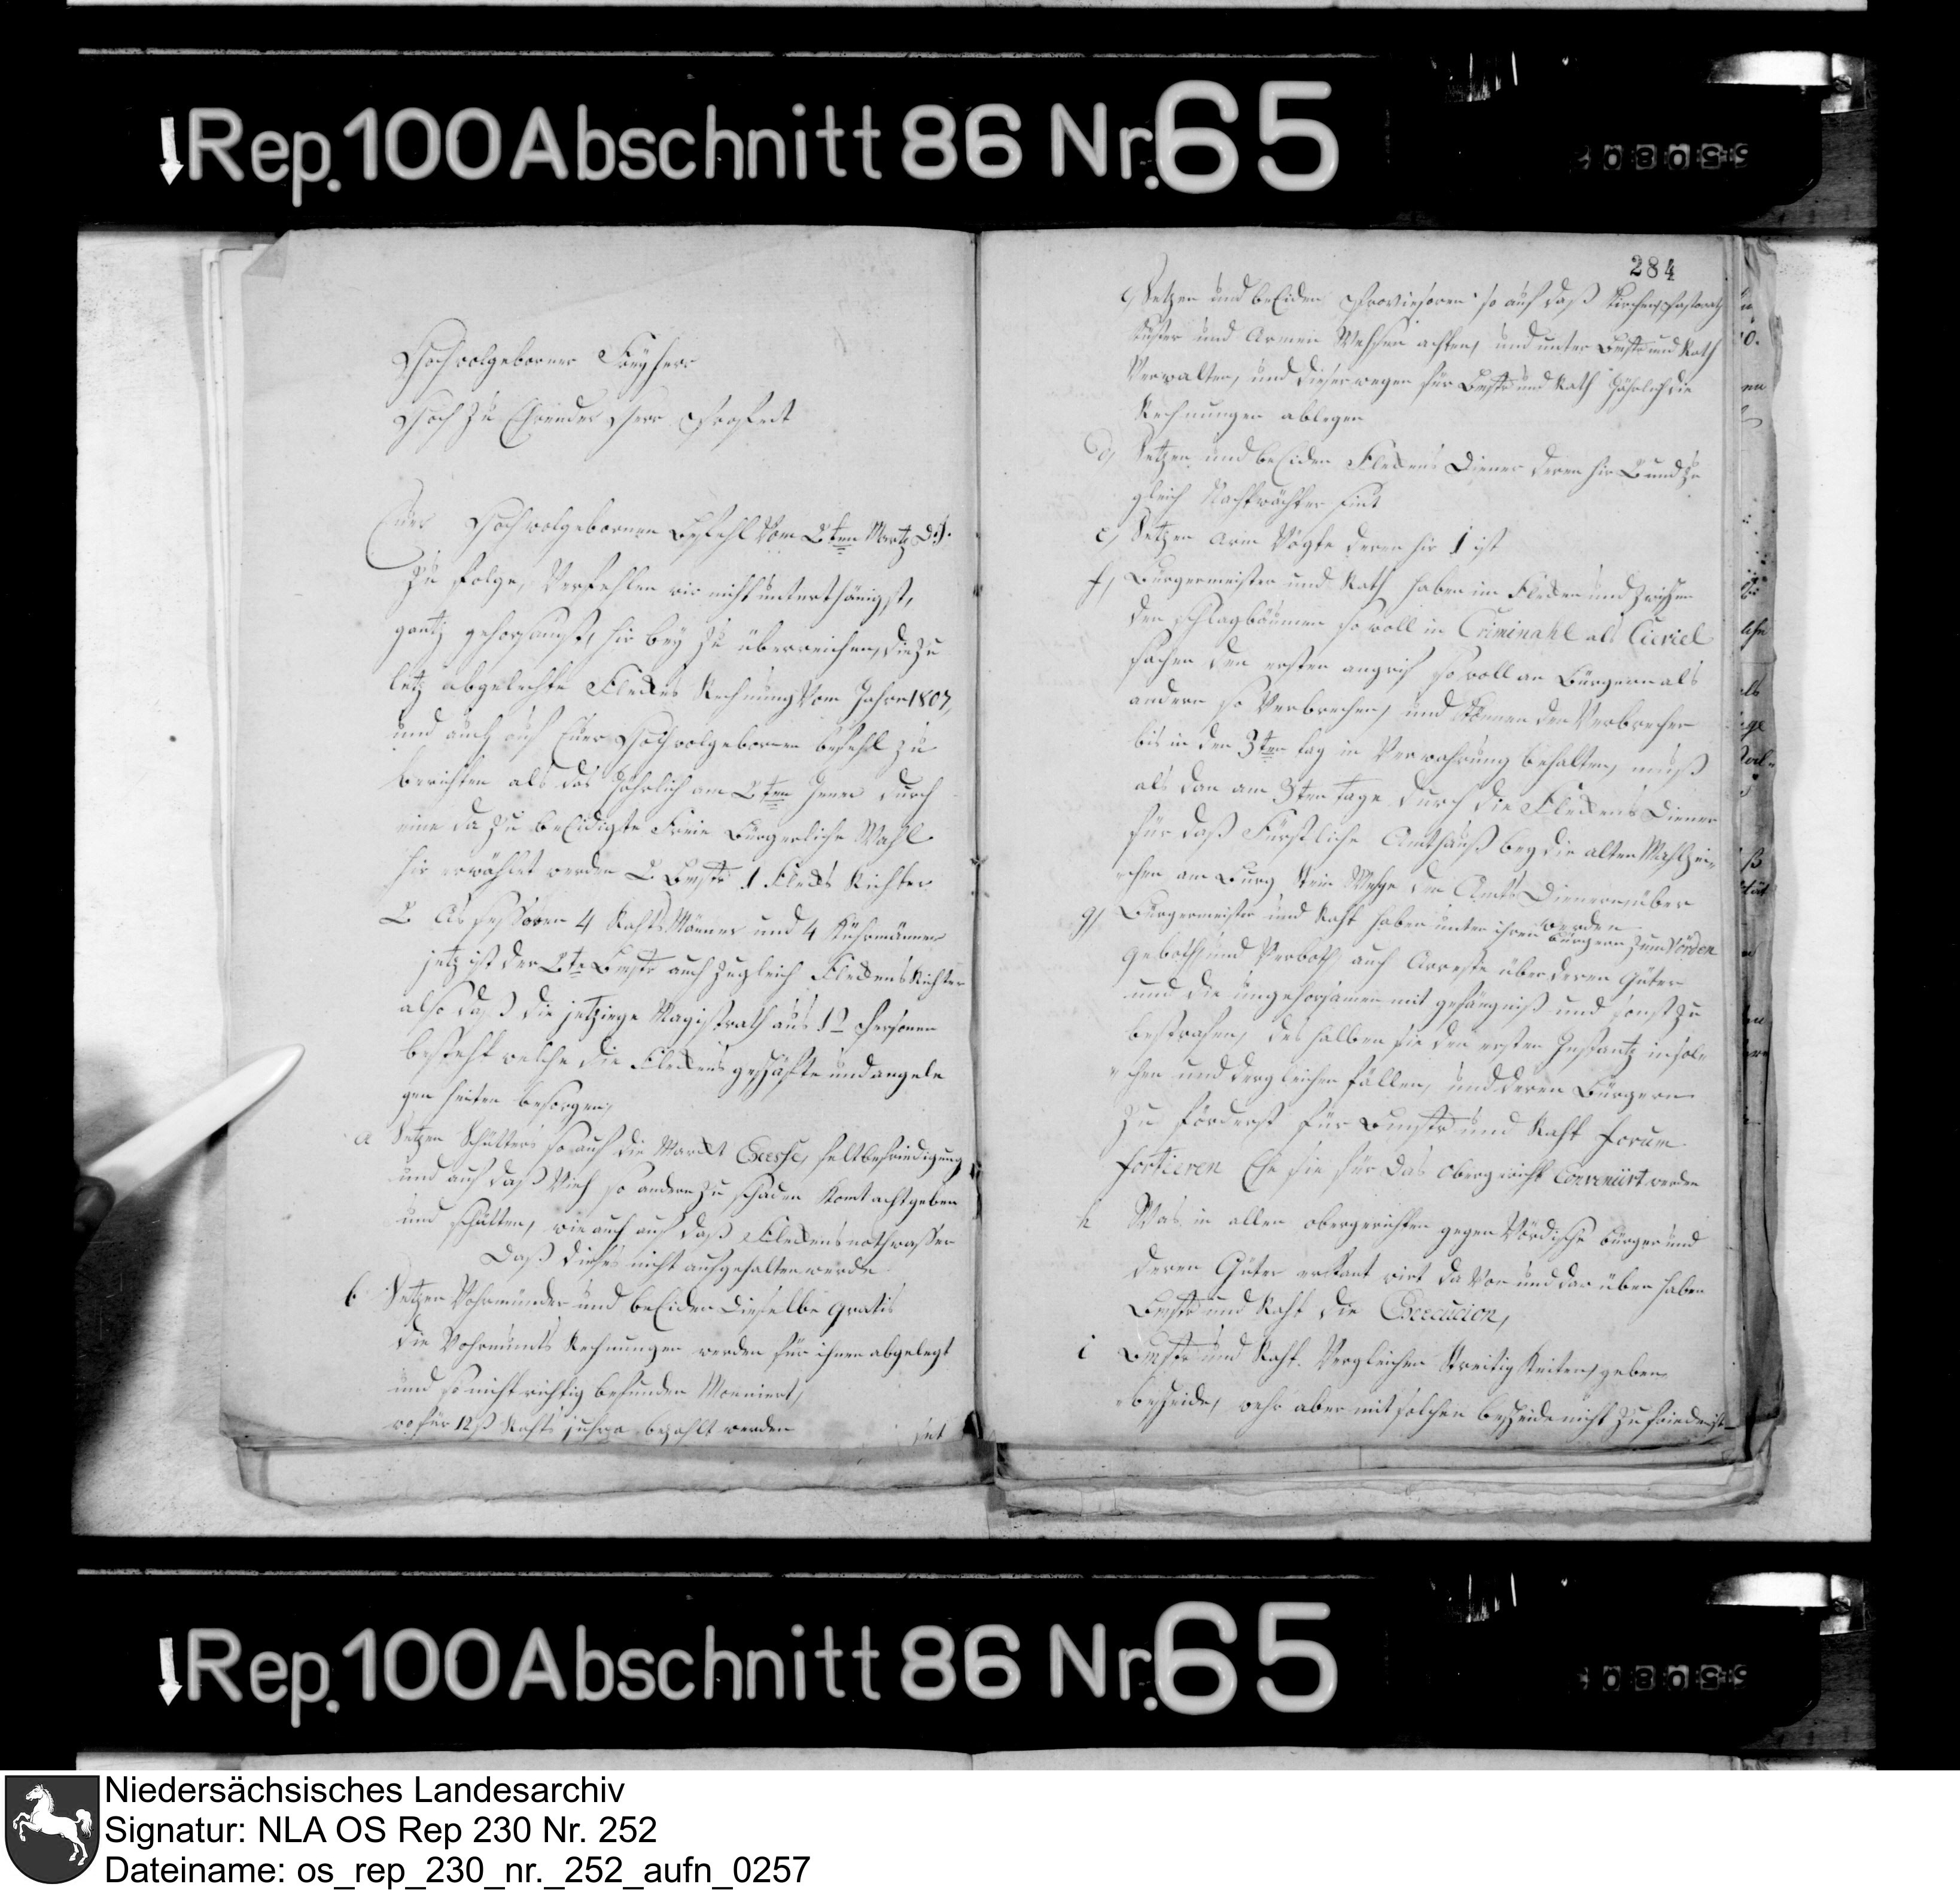 Rep. 100 Abschnitt 86 Nr. 65
Hochwolgeborner Freyherr
Hoch zu Ehrender Herr Praefect
Euer Hochwolgebornen Befehl vom 2ten Martz d. J.
zu folge, Verfehlen wir nicht unterthänigst,
gantz gehorsamst, hir bey zu überreichen, die zu
letz abgelechte Fleckens Rechnung vom Jahre 1807,
und auch auf Euer Hochwolgebornen befehl zu
berichten als das Jährlich am 2ten Jener durch
eine da zu beEidigte Freie Bürgerliche Wahl
hir erwählet werden 2 Bmstr 1 Fleckens Richter
2 Assessoren 4 Rahts Männer und 4 Kührmänner
jetz ist der 2te Bmstr auch zugleich Fleckens Richter
also daß die jetziege Magistrath aus 12 Personen
besteht welche die Fleckens geschäfte und angele
gen heiten besorgen,
a Setzen Schütters so auf die Marckt Excesse, feltbefriedigung
und auf daß Vieh so andern zu schaden Komt acht geben
und schütten, wie auch auf daß Fleckens nothwasser
Daß dieses nicht aufgehalten werde
b Setzen Vohrmünder und beEiden dieselbe gratis
die Vohrmunds Rechnungen werden für ihnen abgelegt
und so nicht richtig befunden Monniert,
wofür 12 ß Rahts juhra bezahlt werden
284
c) Setzen und beEiden Proviesoren so auf daß Kirchen, Pastorath
Küster und Armen Wessen achten, und unter Bmstr und Rath
Verwalten, und dieserwegen für Bmstr und Rath Jährlich die
Rechnungen ablegen
d) Setzen und beEiden Fleckens Diener deren hir 2 und zu
gleich Nachtwächter sint
e) Setzen Arm Vögte deren hir 1 ist
f) Burgermeister und Rath haben im Flecken und zwischen
den Schlagbäumen so woll in Criminahl als Cieviel
sachen den ersten angrif so woll an Bürgern als
andern so Verbrechen, und können den Verbrecher
bis in den 3ten tag in Verwahrung behalten, muß
als dan am 3ten tage durch die Fleckens Diener
für daß Fürstliche Amthauß bey die alten Mahlzei-
chen am Burg Stein Wege den Amts Dienern über
werden
g) Bürgermeister und Raht haben unter ihren Bürgern zum Vörden
Geboth und Verboth auch Arreste über deren Güter
und die ungehorsamen mit gefängniß und sonst zu
bestrafen, des halben sie den ersten Instantz in sol-
chen und dergleichen fällen, und deren Bürgern
zu förderst für Bmstr und Raht forum
fortieren Ehe sie für das Obergericht Conveniirt werden
h Was in allen obergerichten gegen Vördische bürger und
deren Güter erkant wirt da Von und dar über haben
Bmstr und Raht die Execucion,
i Bmstr und Raht Vergleichen Streitig Keiten, geben
bescheide, wehr aber mit solchen bescheide nicht zu frieden ist
Rep. 100 Abschnitt 86 Nr. 65
Niedersächsisches Landesarchiv
Signatur: NLA OS Rep 230 Nr. 252
Dateiname: os_rep_230_nr._252_aufn_0257